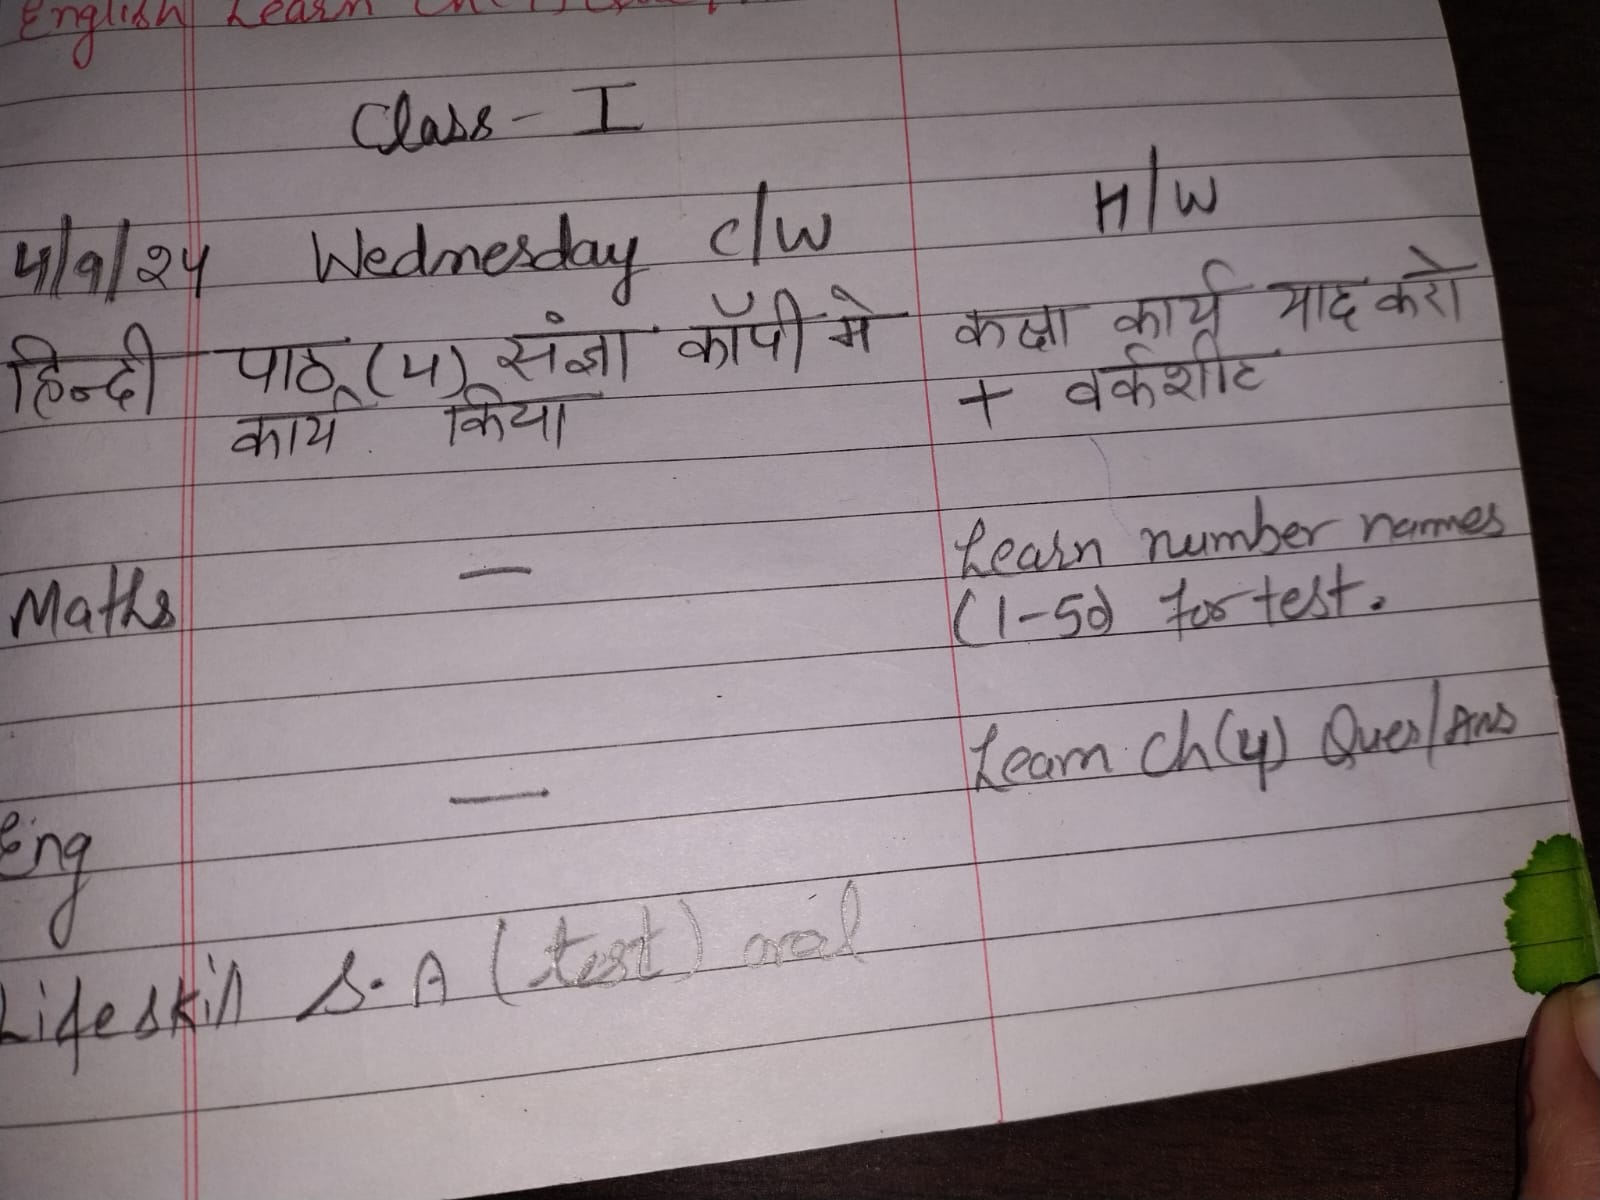 English Learn Ch
Class - I
4/9/24 Wednesday C/W H/W
हिन्दी पाठ (4) संज्ञा कॉपी मे कक्षा कार्य याद करो
कार्य किया + वर्कशीट
Maths — Learn number names
(1-50) for test.
Eng — Learn Ch(4) Ques/Ans
Life skill S.A (test) oral